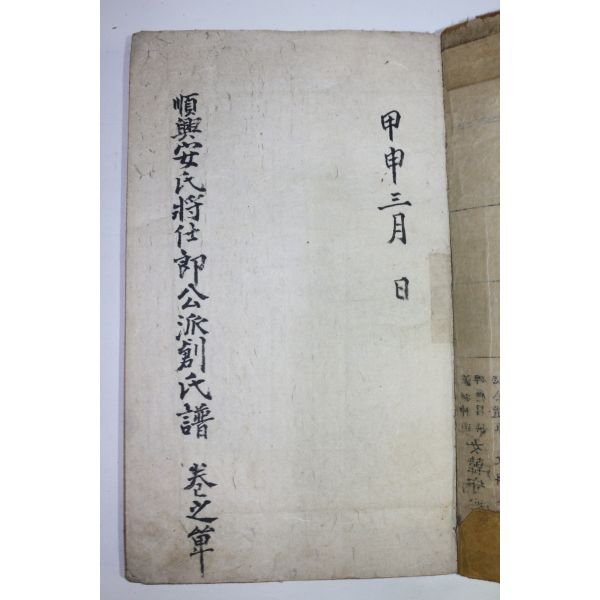 甲申三月 日
順興安氏將仕郎公派創氏譜 卷之單